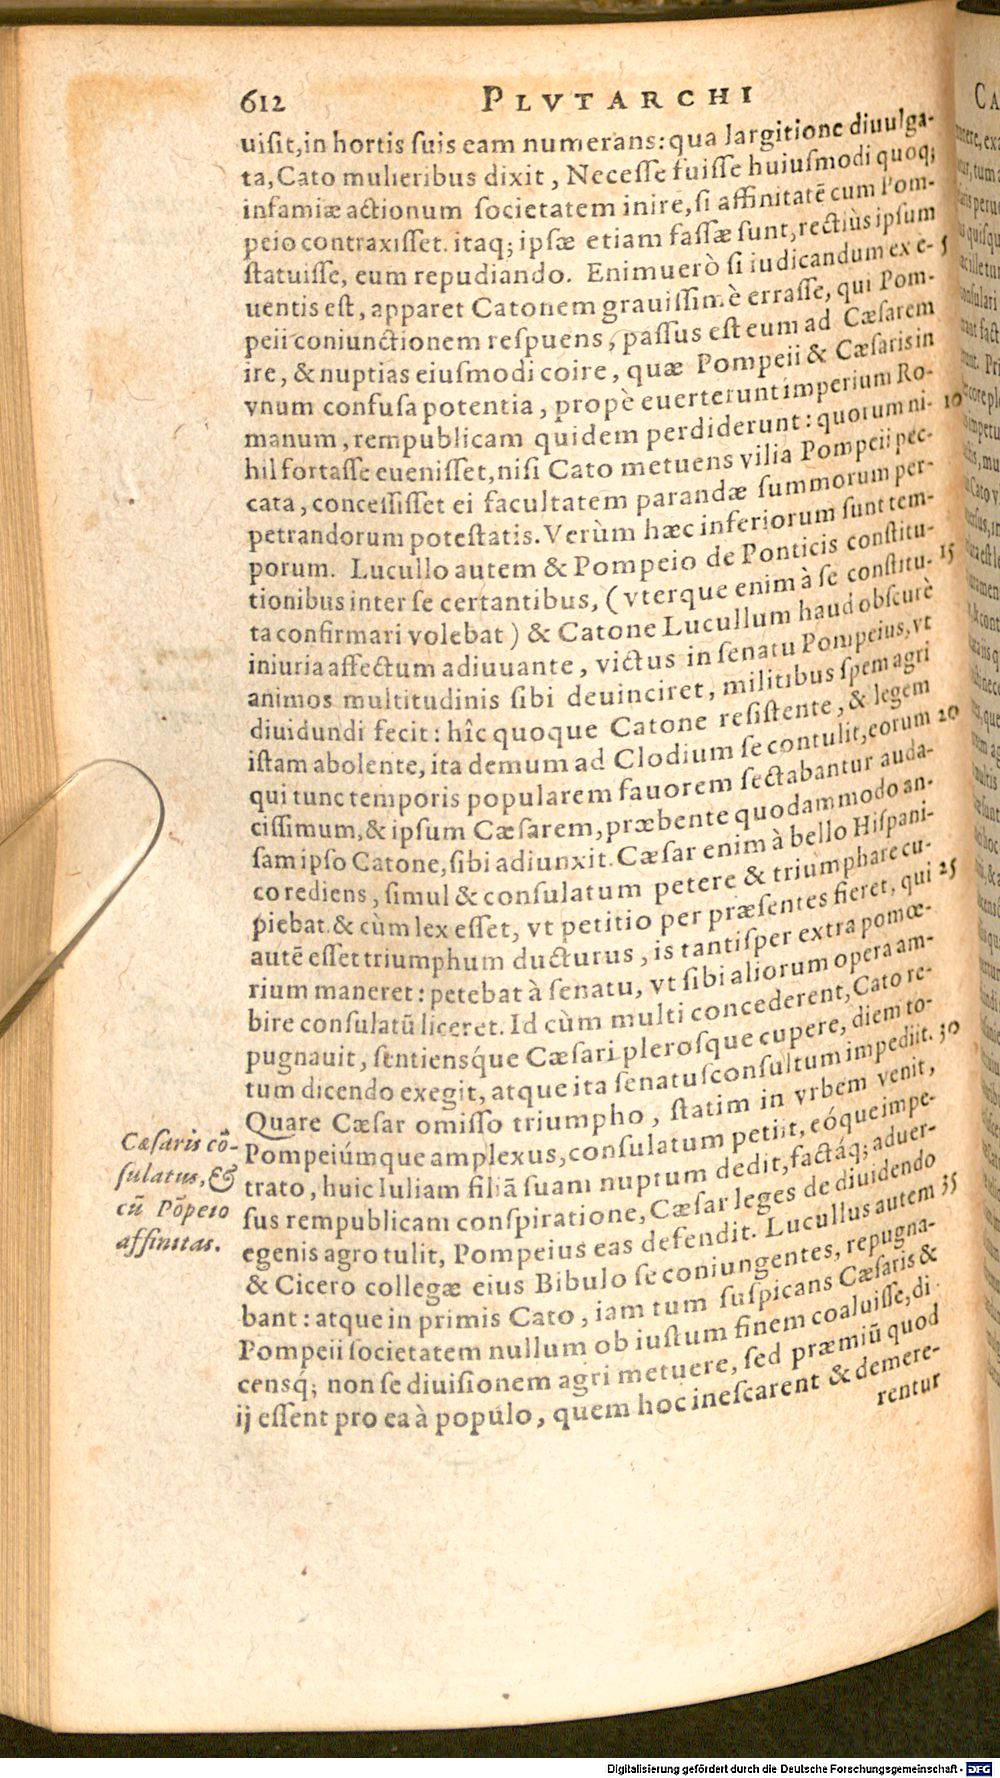 612 PLVTARCHI
uisit, in hortis suis eam numerans: qua largitione diuulga-
ta, Cato mulieribus dixit, Necesse fuisse huiusmodi quoq;
infamiæ actionum societatem inire, si affinitatē cum Pom-
peio contraxisset. itaq; ipsæ etiam fassæ sunt, rectiùs ipsum
statuisse, eum repudiando. Enimuerò si iudicandum ex e- 5
uentis est, apparet Catonem grauissimè errasse, qui Pom-
peii coniunctionem respuens, passus est eum ad Cæsarem
ire, & nuptias eiusmodi coire, quæ Pompeii & Cæsaris in
vnum confusa potentia, propè euerterunt imperium Ro-
manum, rempublicam quidem perdiderunt: quorum ni- 10
hil fortasse euenisset, nisi Cato metuens vilia Pompeii pec-
cata, concessisset ei facultatem parandæ summorum per-
petrandorum potestatis. Verùm hæc inferiorum sunt tem-
porum. Lucullo autem & Pompeio de Ponticis constitu-
tionibus inter se certantibus, (vterque enim à se constitu- 15
ta confirmari volebat) & Catone Lucullum haud obscurè
iniuria affectum adiuuante, victus in senatu Pompeius, vt
animos multitudinis sibi deuinciret, militibus spem agri
diuidundi fecit: hîc quoque Catone resistente, & legem
istam abolente, ita demum ad Clodium se contulit, eorum 20
qui tunc temporis popularem fauorem sectabantur auda-
cissimum, & ipsum Cæsarem, præbente quodammodo an-
sam ipso Catone, sibi adiunxit. Cæsar enim à bello Hispani-
co rediens, simul & consulatum petere & triumphare cu-
piebat. & cùm lex esset, vt petitio per præsentes fieret, qui 25
autē esset triumphum ducturus, is tantisper extra pomœ-
rium maneret: petebat à senatu, vt sibi aliorum opera am-
bire consulatū liceret. Id cùm multi concederent, Cato re-
pugnauit, sentiensque Cæsari plerosque cupere, diem to-
tum dicendo exegit, atque ita senatusconsultum impediit. 30
Quare Cæsar omisso triumpho, statim in vrbem venit,
Pompeiúmque amplexus, consulatum petiit, eóque impe-
trato, huic Iuliam filiā suam nuptum dedit, factáq; aduer-
sus rempublicam conspiratione, Cæsar leges de diuidendo
egenis agro tulit, Pompeius eas defendit. Lucullus autem 35
& Cicero collegæ eius Bibulo se coniungentes, repugna-
bant: atque in primis Cato, iam tum suspicans Cæsaris &
Pompeii societatem nullum ob iustum finem coaluisse, di
censq́; non se diuisionem agri metuere, sed præmiū quod
ij essent pro ea à populo, quem hoc inescarent & demere-
rentur
Cæsaris cō-
sulatus, &
cū Pōpeio
affinitas.
Digitalisierung gefördert durch die Deutsche Forschungsgemeinschaft - DFG